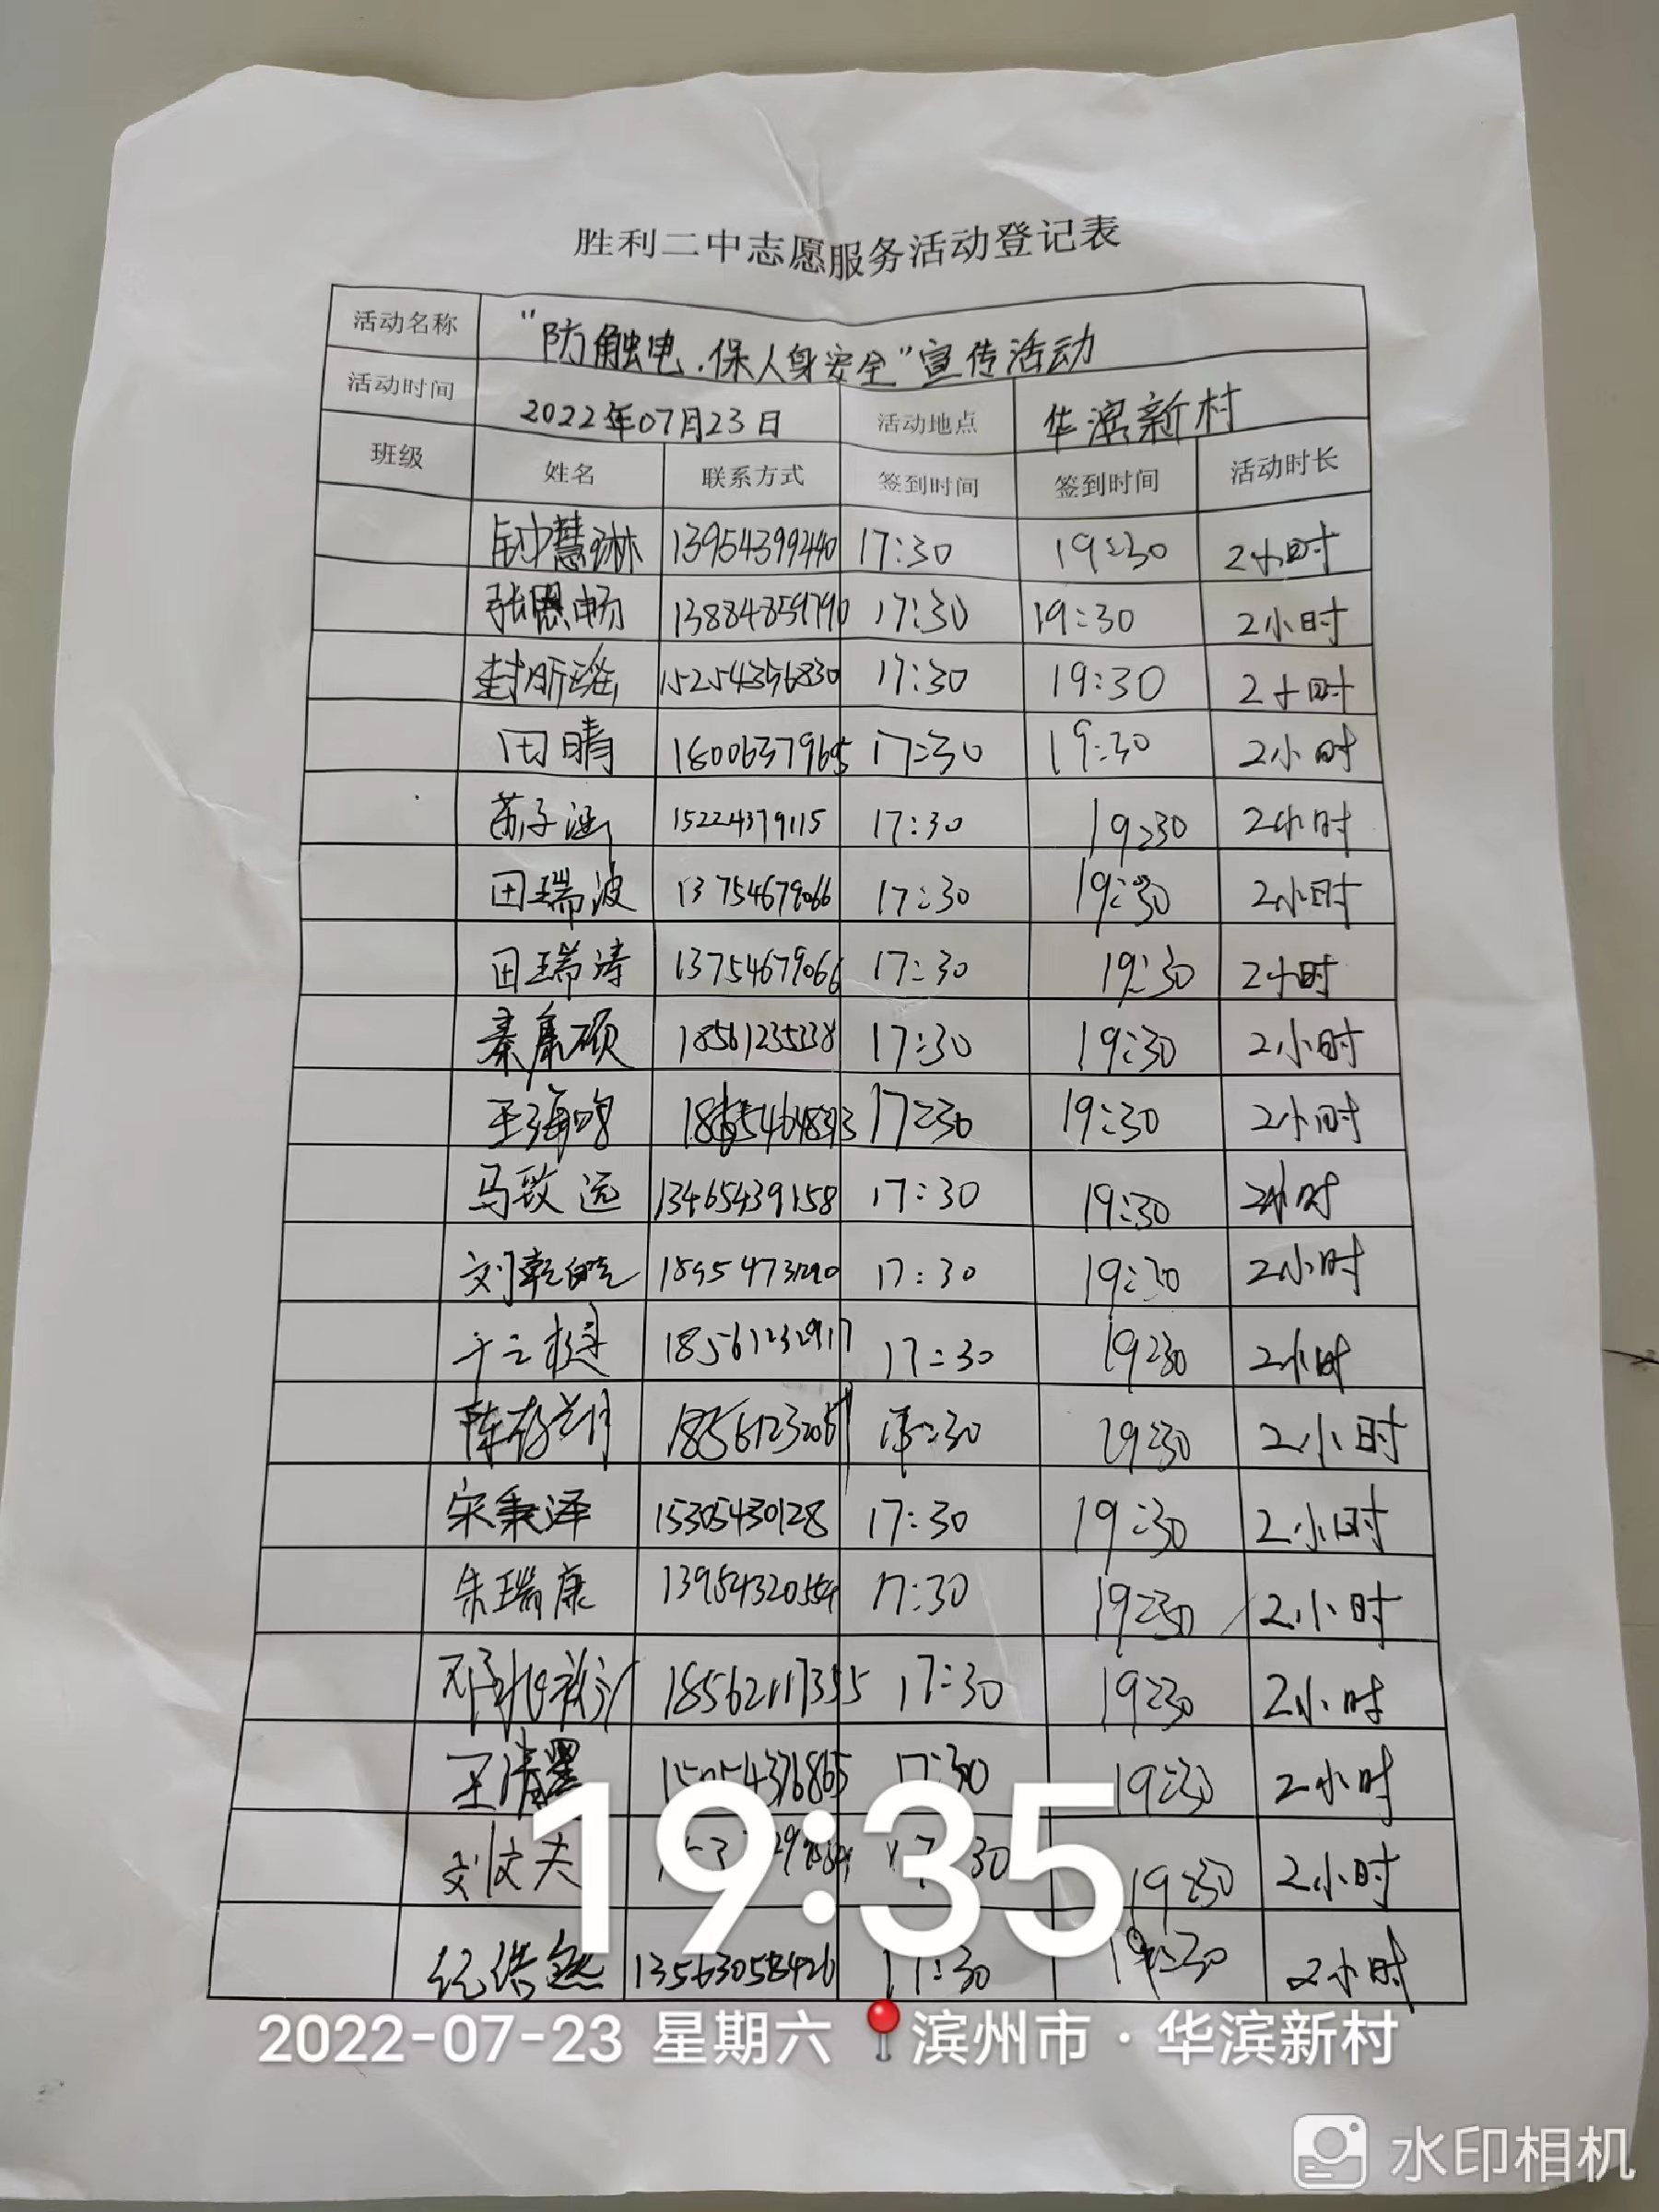 胜利二中志愿服务活动登记表
活动名称 “防触电.保人身安全”宣传活动
活动时间 2022年07月23日 活动地点 华滨新村
班级 姓名 联系方式 签到时间 签到时间 活动时长
钟慧琳 13954399440 17:30 19:30 2小时
张恩畅 13884859790 17:30 19:30 2小时
封昕瑶 15254356830 17:30 19:30 2小时
田晴 17:30 19:30 2小时
苏子涵 15224379115 17:30 19:30 2小时
田瑞波 13754679066 17:30 19:30 2小时
田瑞涛 13754679066 17:30 19:30 2小时
秦康硕 18561235238 17:30 19:30 2小时
17:30 19:30 2小时
马致远 13465439158 17:30 19:30 2小时
17:30 19:30 2小时
18561232917 17:30 19:30 2小时
17:30 19:30 2小时
宋秉泽 15305430128 17:30 19:30 2小时
朱瑞康 13954320554 17:30 19:30 2小时
18562117355 17:30 19:30 2小时
王清墨 15054376865 17:30 19:30 2小时
刘文夫 17:30 19:30 2小时
纪浩然 13563058426 17:30 19:30 2小时
19:35
2022-07-23 星期六 滨州市·华滨新村
水印相机